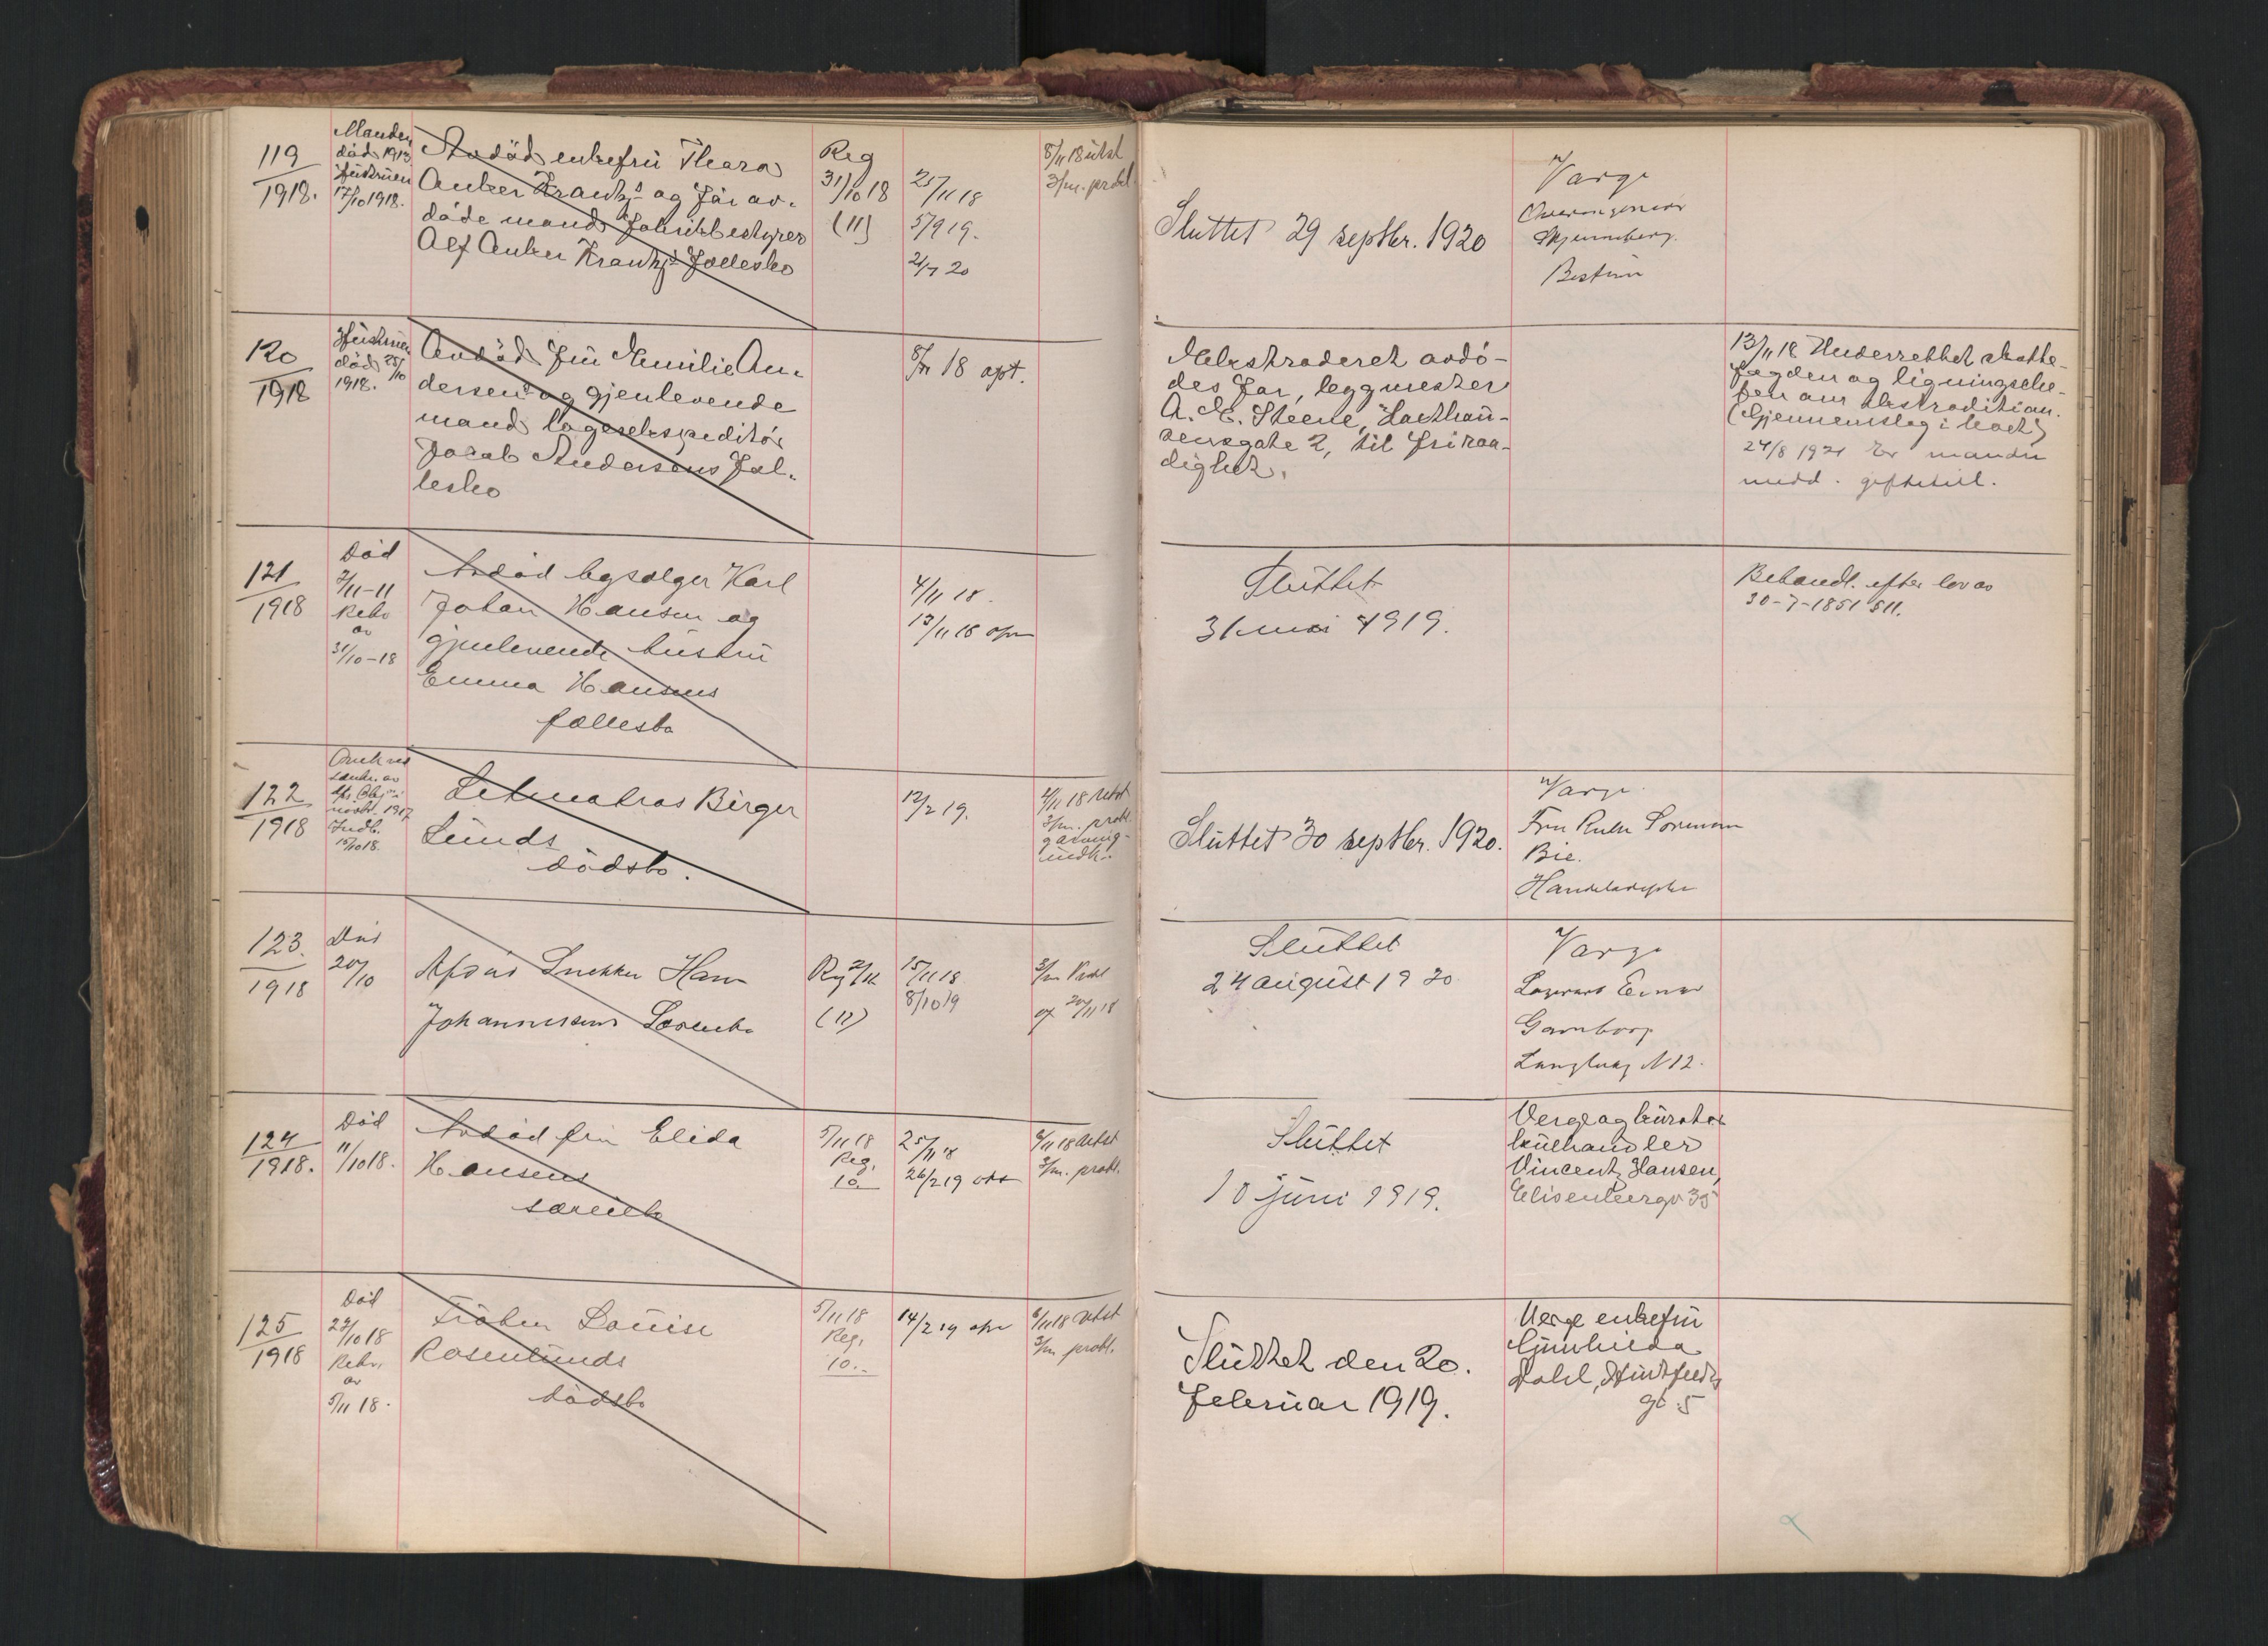 119
1918.
Manden
död 1913
Hustruen
17/10 1918.
Avdöd enkefrü Thora
Anker Krantz' og før av-
døde mand fabrikbestyrer
Alf Anker Krantz's fællesbo
Reg
31/10 18
(11)
25/11 18
5/9 19.
21/7 20
8/11 18 utst
3/m. prokl.
Slüttet 29 septbr. 1920
Værge
Overingeniør
Bestum
120
1918
Hustruen
död 25/10
1918.
Avdöd frü Emilie An-
dersens og gjenlevende
mand lagerekspeditör
Jacob Andersens fæl-
lesbo
18 opt.
Ekstraderet avdö-
des far, leggmester
A. E. Steene,
gate 2, til friraa-
dighet.
13/11 18 Underrettet skatte-
fogden og ligningsche-
fen om ekstradition.
(Gjennemslag i koct)
24/8 1921 Er manden
medd. giftetill.
121
1918
Död
2/11-11
Rekv
av
31/10-18
Avdöd bysælger Karl
Johan Hansen og
gjenlevende hüstrü
Emma Hansens
fællesbo
4/11 18.
13/11 18 opr
Slüttet
31 mai 1919.
Behandl. efter lov av
30-7-1851 §11.
122
1918
1917
Indb.
15/10 18.
Birger
Lünds
dödsbo.
12/2 19.
4/11 18 Utst
3/m. prokl.
Slüttet 30 septbr. 1920.
Værge
Frü Ruth
Bie.
123.
1918
Död
20/10
Afdöd Snekker Hans
Johannessens Særeiebo
Reg 2/11
(12)
15/11 18
8/10 19
3/m Prokl
af 20/11 18
Slüttet
24 august 1920
Værge
Einar
Garnborg
N 12.
124
1918.
Död
11/10 18.
Avdöd frü Elida
Hansens
særeiebo
5/11 18
Reg.
10.-
25/11 18
26/2 19
6/11 18 Utst
3/m. prokl.
Slüttet
10 jüni 1919.
Verge og kürator
külhandler
Vincent Hansen,
Elisenbergv 35
125
1918
Död
27/10 18
Rekv.
av
5/11 18.
Fröken Loüise
Rosenlünds
dödsbo
5/11 18
Reg.
10.-
14/2 19 opr
6/11 18 Utst
3/m prokl.
Slüttet den 20.
februar 1919.
Verge enkefrü
Günhilda
Dahl, Huitfeldts
gt 5